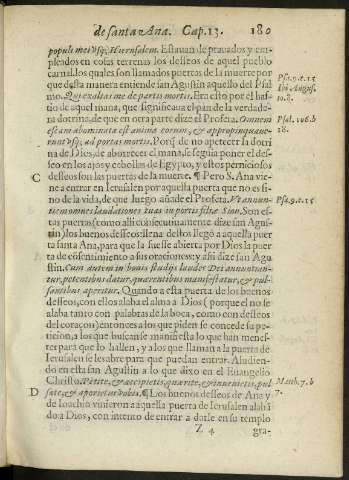 de santa Ana. Cap. 13. 180
populi mei vsq; Hierusalem. Estauan de prauados y em-
pleados en cosas terrenas los desseos de aquel pueblo
carnal, los quales son llamados puertas de la muerte por
que desta manera entiende san Agustin aquello del Psal
mo. Qui exaltas me de portis mortis. Era esto por el has-
tio de aquel mana, que significaua el pan de la verdade-
ra dotrina, de que en otra parte dize el Profeta. Omnem
escam abominata est anima eorum, & appropinquaue-
runt vsq; ad portas mortis. Porq̃ de no apetecer la dotri
na de Dios, de aborrecer el mana, se seguia poner el des-
seo en los ajos y cebollas de Egypto, y estos perniciosos
desseos son las puertas de la muerte. ¶ Pero S. Ana vie-
ne a entrar en Ierusalen por aquella puerta que no es si
no de la vida, de que luego añade el Profeta. Vt annun-
tiem omnes laudationes tuas in portis filiæ Sion. Son es-
tas puertas (como alli consecutiuamente dize san Agus-
tin) los buenos desseos: llena destos llegò a aquella puer
ta santa Ana, para que la fuesse abierta por Dios la puer
ta de cõsentimiento a sus oraciones: y assi dize san Agu
stin. Cum autem in bonis studijs laudes Dei annuntian-
tur, petentibus datur, quærentibus manifestatur, & pul-
santibus aperitur. Quando a esta puerta de los buenos
desseos, con ellos alaba el alma a Dios (porque el no se
alaba tanto con palabras de la boca, como con desseos
del coraçon) entonces a los que piden se concede su pe-
ticion, a los que buscan se manifiesta lo que han menes-
ter para que lo hallen, y a los que llaman a la puerta de
Ierusalen se les abre para que puedan entrar. Aludien-
do en esta san Agustin a lo que dixo en el Euangelio
Christo. Petite, & accipietis, quærite, & inuenietis, pul
sate, & aperietur vobis. ¶ Los buenos desseos de Ana y
de Ioachin vinieron a aquella puerta de Ierusalen alabã
do a Dios, con intento de entrar a darse en su templo
Z 4 gra-
Psa. 9. c. 15
Ibi. Augus.
to. 8.
Psal. 106. b
18.
C
Psa. 9. c. 15
Math. 7. b
7.
D